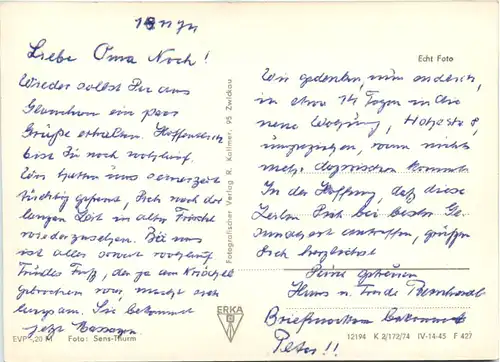 Liebe Oma Noch!
Wieder sollst Du aus
Glauchau ein paar
Grüße erhalten. Hoffentlich
bist Du noch wohlauf.
Wir hatten uns seinerzeit
tüchtig gefreut, Dich nach der
langen Zeit in alter Frische
wiederzusehen. Bei uns
ist alles soweit wohlauf
Trudes Fuß, der ja am Knöchel
gebrochen war, macht sich
langsam. Sie bekommt
jetzt Massagen
EVP -,20 M Foto: Sens-Thurm
Fotografischer Verlag R. Kallmer, 95 Zwickau
Echt Foto
Wir gedenken, nun endlich,
in etwa 14 Tagen in die
neue Wohnung,
umzuziehen, wenn nichts
mehr dazwischen kommt.
In der Hoffnung, daß diese
Zeilen Dich bei bester Ge-
sundheit antreffen, grüßen
Dich herzlichst
Deine
Hans u. Trude
Briefmarken bekommt
Peter!!
ERKA
12194 K 2/172/74 IV-14-45 F 427